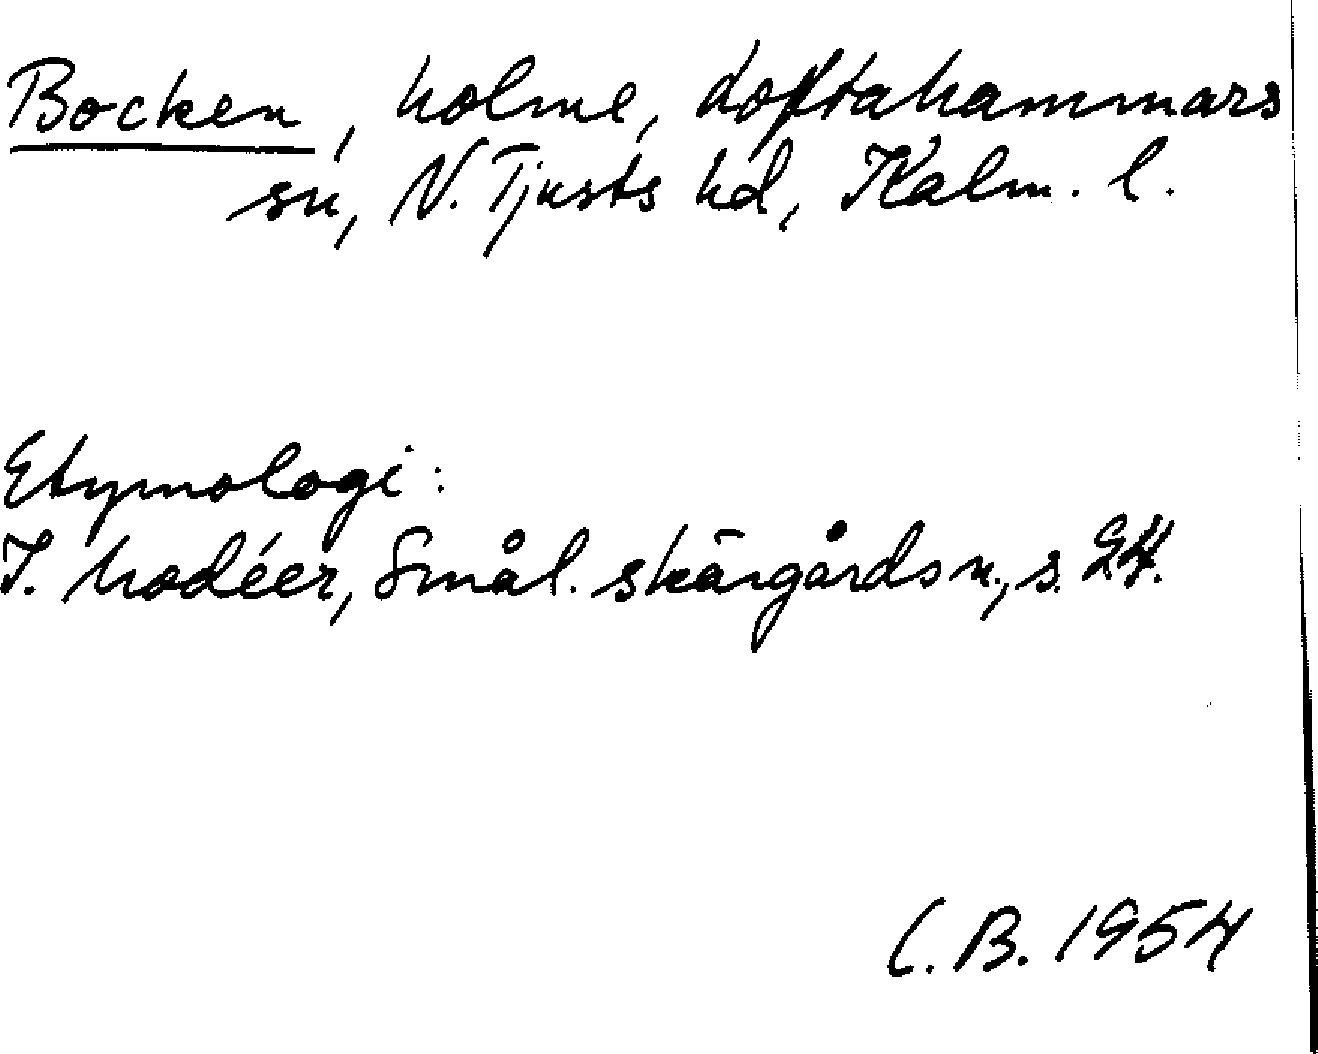 Bocken, holme, Loftahammars
sn, N. Tjusts hd, Kalm. l.
Etymologi:
I. Modéer, Smål. skärgårdsn., s. 24.
C. B. 1954